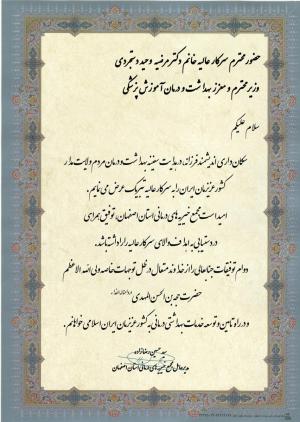 حضور محترم سرکار عالیه خانم دکتر مرضیه وحید دستجردی
وزیر محترم و معزز بهداشت و درمان آموزش پزشکی
سلام علیکم
سکان داری اندیشمند فرزانه، در هدایت سفینه بهداشت و درمان مردم ولایت مدار
کشور عزیزمان ایران را به سرکار عالیه تبریک عرض می نمایم.
امید است مجمع خیریه های درمانی استان اصفهان، توفیق همراهی
در دستیابی به اهداف والای سرکار عالیه را داشته باشد.
دوام توفیقات جنابعالی را از خداوند متعال در ظل توجهات خاصه ولی الله الاعظم
حضرت حجه بن الحسن المهدی
و در راه تامین و توسعه خدمات بهداشتی درمانی به کشور عزیزمان ایران اسلامی خواهانم.
سید حسین رضازاده
مدیرعامل مجمع خیریه های درمانی استان اصفهان